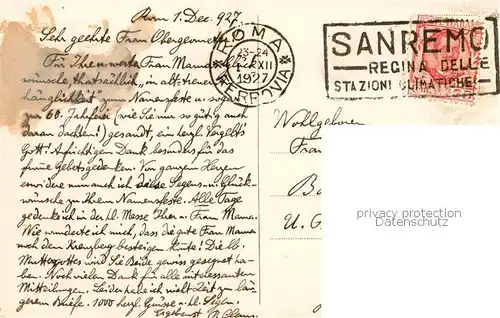 Rom 1. Dez. 927
Sehr geehrte Frau Obergeometer
Für Ihre u. werte Frau Mama Glück-
wünsche, thatsächlich, in alt-treuer An-
hänglichkeit zum Namensfeste u. sogar
zur 60. Jahrfeier (wie Sie nur so gütig auch
daran dachten!) gesandt, ein herzl. Vergelts
Gott! Aufrichtigen Dank besonders für das
fromme Gebetsgedenken. Von ganzem Herzen
erwidere nun auch ich diese Segens- u. Glück-
wünsche zu Ihrem Namensfeste. Alle Tage
gedenk ich in der hl. Messe Ihrer u. Frau Mama.
Wie wunderte ich mich, dass die gute Frau Mama
noch den Kreuzberg besteigen konnte! Die lb.
Muttergottes wird Sie Beide gewiss gesegnet ha-
ben. Noch vielen Dank für alle interessanten
Mitteilungen. Leider habe ich nicht Zeit zu län-
gerem Briefe. 1000 herzl. Grüsse u. hl. Segen.
Ergebenst P. Clemens
ROMA
23-24
XII
1927
FERROVIA
SANREMO
REGINA DELLE
STAZIONI CLIMATICHE
Wohlgeboren
Frau
U. G
privacy protection
Datenschutz